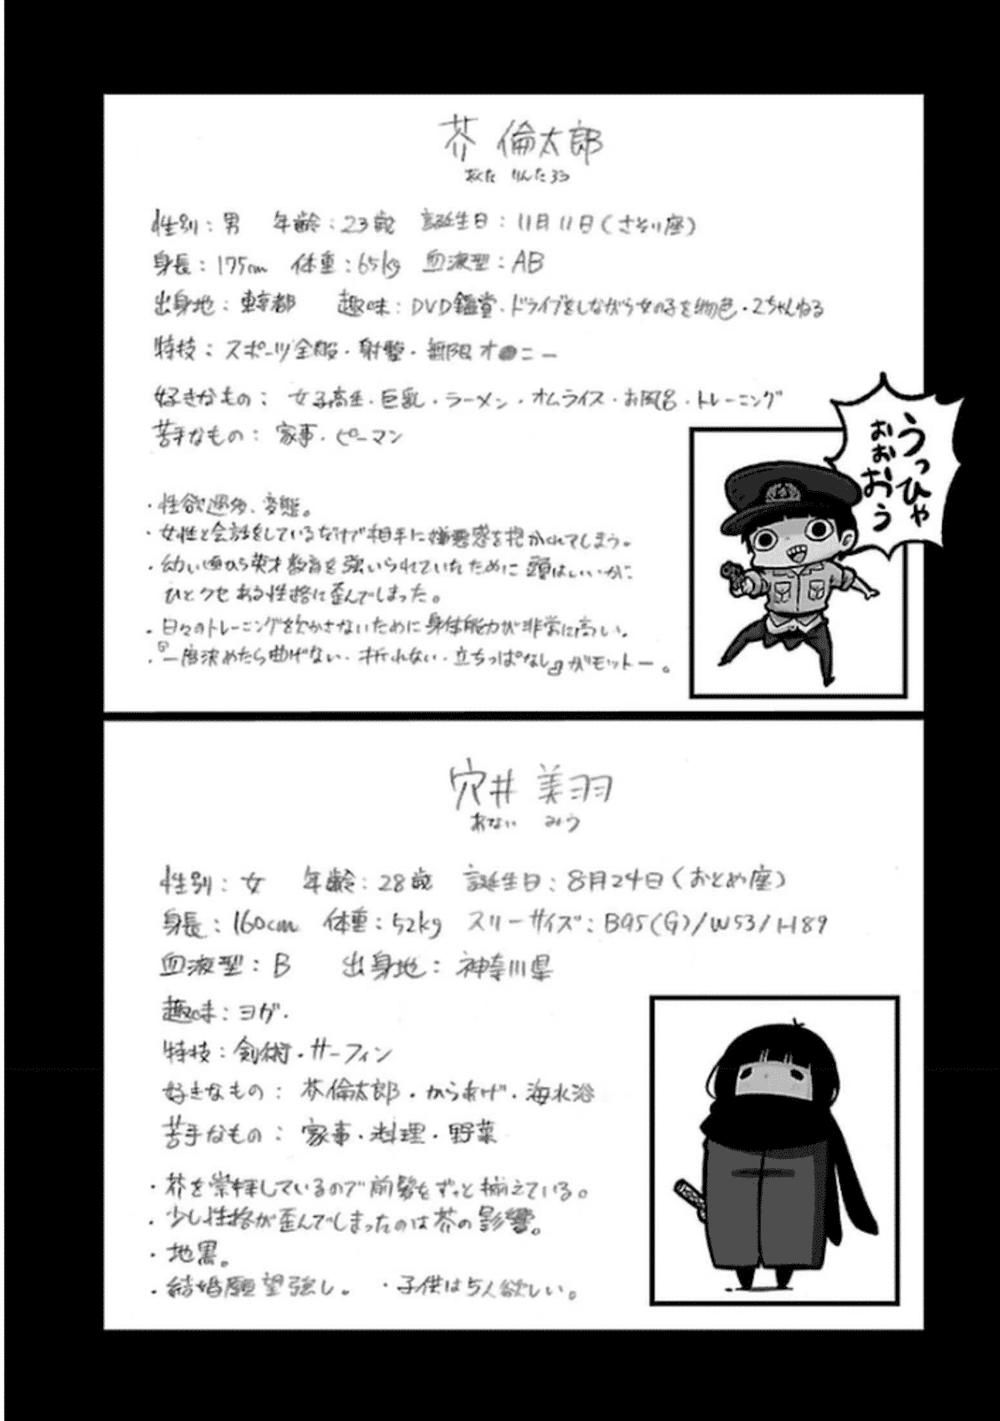 芥 倫太郎
あくた りんたろう
性別：男 年齢：23歳 誕生日：11月11日(さそり座)
身長：175cm 体重：65kg 血液型：AB
出身地：東京都 趣味：DVD鑑賞・ドライブをしながら女の子を物色・2ちゃんねる
特技：スポーツ全般・射撃・無限オ●ニー
好きなもの：女子高生・巨乳・ラーメン・オムライス・お風呂・トレーニング
苦手なもの：家事・ピーマン
・性欲過多、変態。
・女性と会話をしているだけで相手に嫌悪感を抱かれてしまう。
・幼い頃から英才教育を強いられていたために頭はいいが
ひとクセある性格に歪んでしまった。
・日々のトレーニングを欠かさないために身体能力が非常に高い。
・『一度決めたら曲げない・折れない・立ちっぱなし』がモットー。
うっひゃ
おおおう
穴井 美羽
あない みう
性別：女 年齢：28歳 誕生日：8月24日(おとめ座)
身長：160cm 体重：52kg スリーサイズ：B95(G)/W53/H89
血液型：B 出身地：神奈川県
趣味：ヨガ・
特技：剣術・サーフィン
好きなもの：芥倫太郎・からあげ・海水浴
苦手なもの：家事・料理・野菜
・芥を崇拝しているので前髪をずっと揃えている。
・少し性格が歪んでしまったのは芥の影響。
・地黒。
・結婚願望強し。 ・子供は5人欲しい。